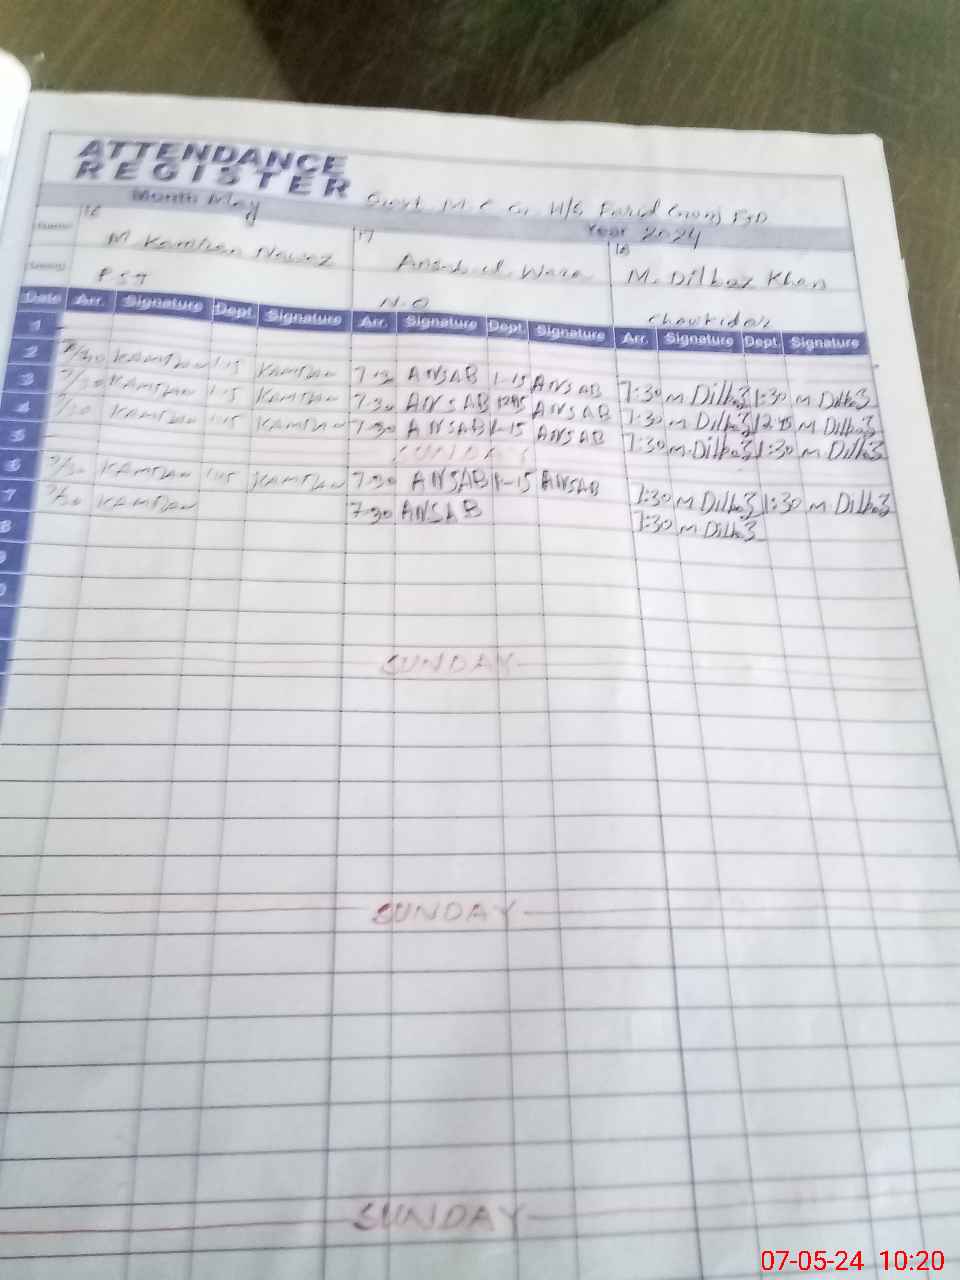 ATTENDANCE
REGISTER
Month May Govt. M.C. H/S Farid Year 2024
16 17 18
M. Kamran Nawaz M. Dilbaz Khan
PST N.Q Chowkidar
Date Arr. Signature Dept. Signature Arr. Signature Dept. Signature Arr. Signature Dept. Signature
1
2 7/30 KAMRAN 1-15 KAMRAN 7-30 ANSAB 1-15 ANSAB 7:30 m Dilbaz 1:30 m Dilbaz
3 7/30 KAMRAN 1-15 KAMRAN 7-30 ANSAB 1245 ANSAB 7:30 m Dilbaz 12:45 m Dilbaz
4 7/30 KAMRAN 1-15 KAMRAN 7-30 ANSAB 1-15 ANSAB 7:30 m Dilbaz 1:30 m Dilbaz
5 SUNDAY
6 7/30 KAMRAN 1-15 KAMRAN 7-30 ANSAB 1-15 ANSAB 7:30 m Dilbaz 1:30 m Dilbaz
7 7/30 KAMRAN 7-30 ANSAB 7:30 m Dilbaz
8
9
0
SUNDAY
SUNDAY
SUNDAY
07-05-24 10:20